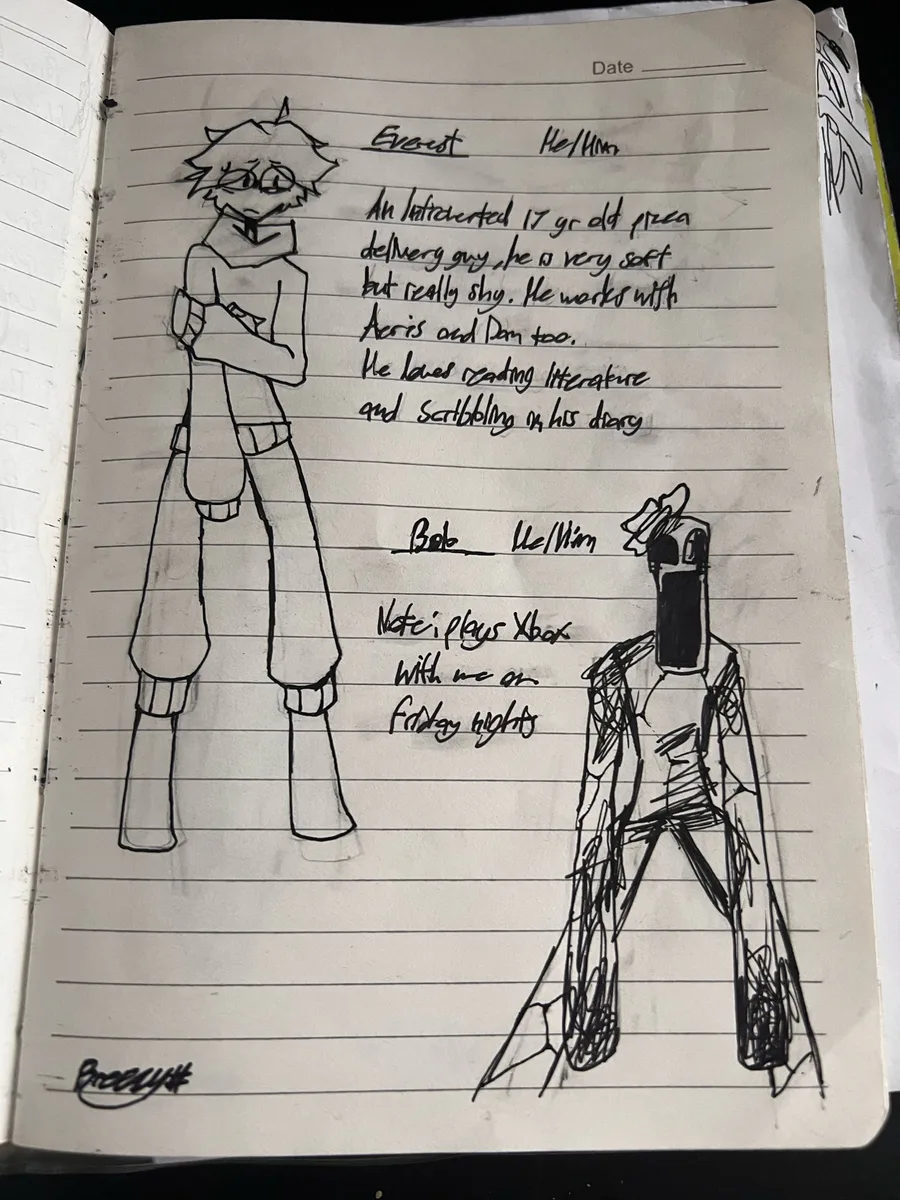 Date
Everest He/Him
An Introverted 17 yr old pizza
delivery guy, he is very soft
but really shy. He works with
Aeris and Dan too.
He loves reading literature
and Scribbling in his diary
Bob He/Him
Note: plays Xbox
With me on
Friday nights
Breezy#